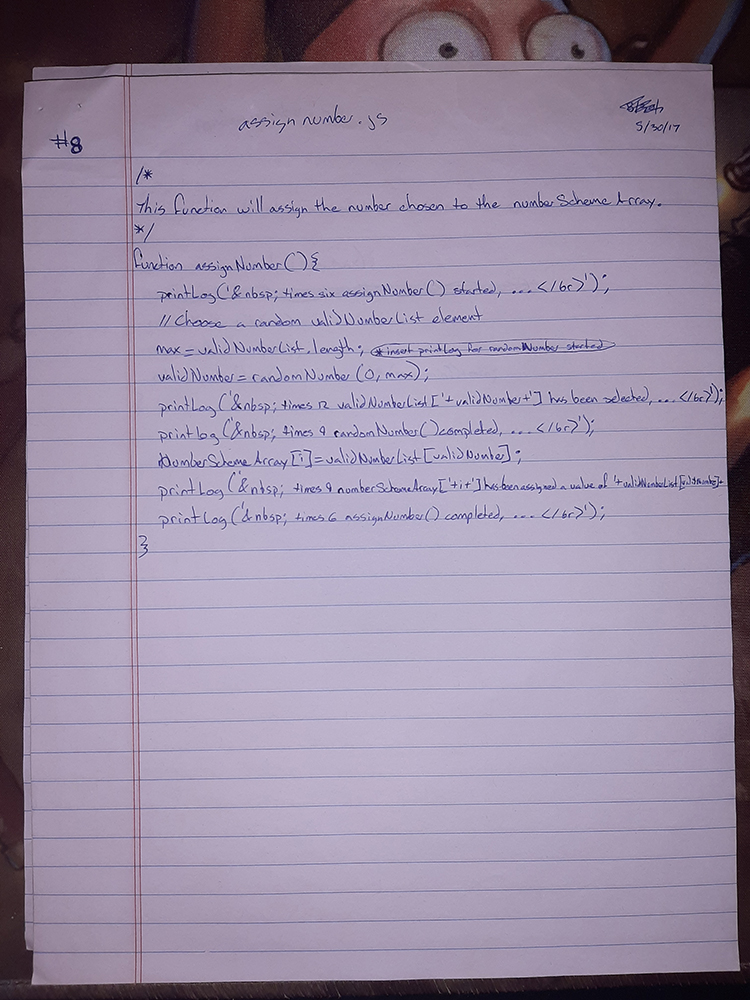 assign number.js
5/30/17
#8
/*
This function will assign the number chosen to the numberSchemeArray.
*/
function assignNumber(){
printLog('&nbsp; times six assignNumber() started, ... </br>');
// Choose a random validNumberList element
max = validNumberList.length; *insert printLog for randomNumber started
validNumber = randomNumber(0, max);
printLog('&nbsp; times 12 validNumberList['+validNumber+'] has been selected, ... </br>');
printLog('&nbsp; times 9 randomNumber() completed, ... </br>');
NumberSchemeArray[i] = validNumberList[validNumber];
printLog('&nbsp; times 9 numberSchemeArray['+i+'] has been assigned a value of '+validNumberList[validNumber]+
printLog('&nbsp; times 6 assignNumber() completed, ... </br>');
}